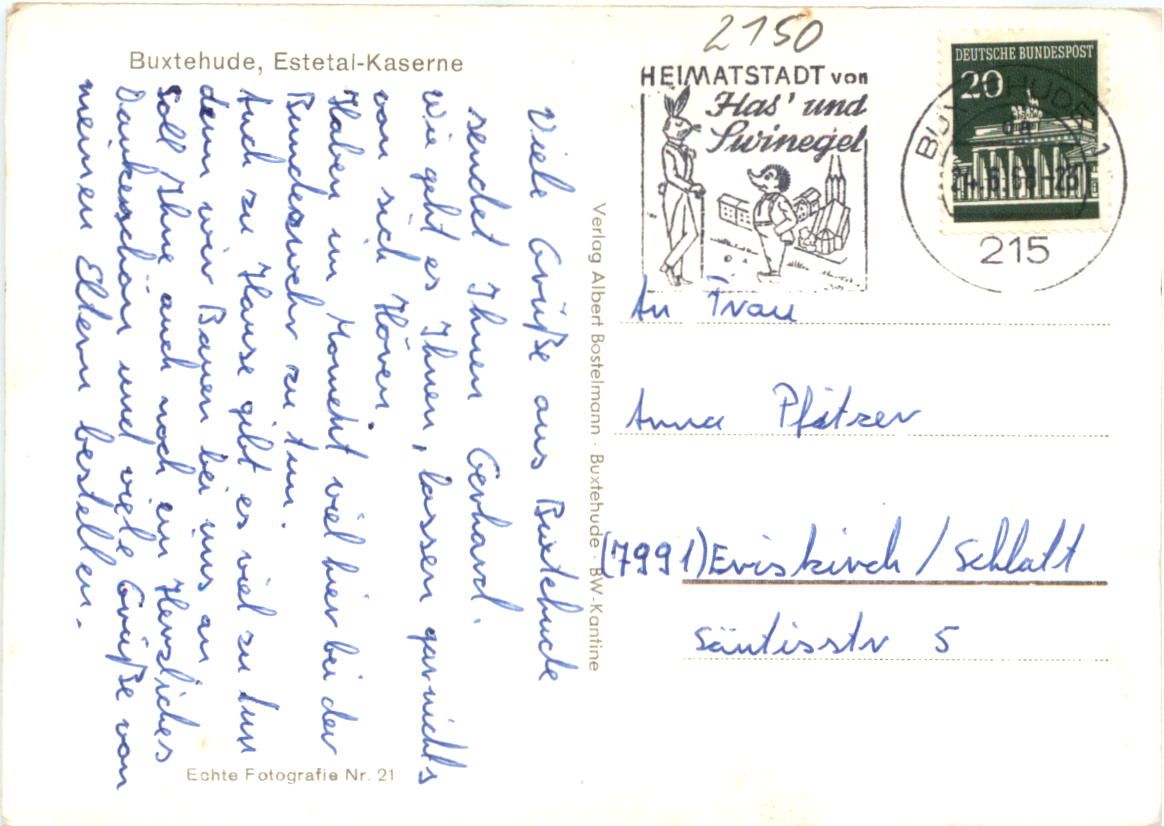 Buxtehude, Estetal-Kaserne
Viele Grüße aus Buxtehude
sendet Ihnen Gerhard.
Wie geht es Ihnen, lassen garnichts
von sich Hören.
Haben im Moment viel hier bei der
Bundeswehr zu tun.
Auch zu Hause gibt es viel zu tun
denn wir Bauen bei uns an
Soll Ihne auch noch ein Herzliches
Dankeschön und viele Grüße von
meinen Eltern bestellen.
Echte Fotografie Nr. 21
Verlag Albert Bostelmann · Buxtehude · BW-Kantine
2150
HEIMATSTADT von
Has' und
Swinegel
DEUTSCHE BUNDESPOST
20
BUXTEHUDE 1
215
An Frau
Anna Pfätzer
(7991) Eriskirch / Schlatt
Säntisstr 5